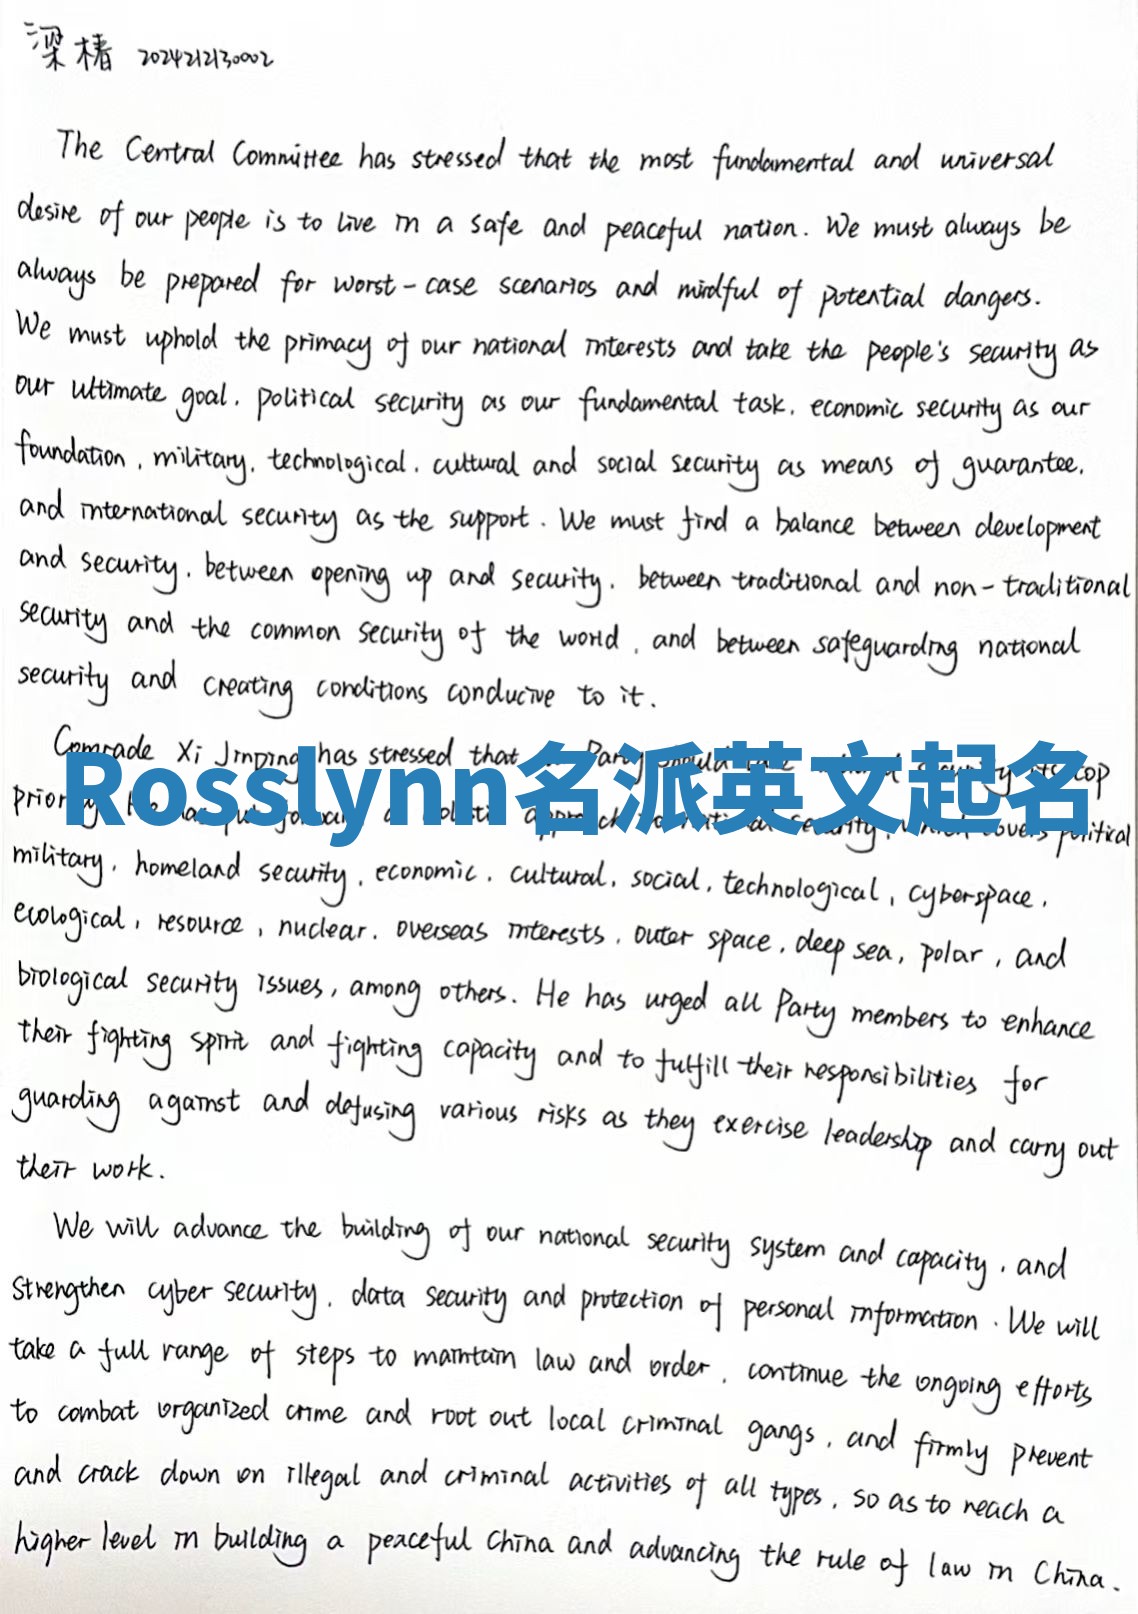 梁椿 2024212130002
The Central Committee has stressed that the most fundamental and universal
desire of our people is to live in a safe and peaceful nation. We must always be
always be prepared for worst-case scenarios and mindful of potential dangers.
We must uphold the primacy of our national interests and take the people's security as
our ultimate goal, political security as our fundamental task, economic security as our
foundation, military, technological, cultural and social security as means of guarantee,
and international security as the support. We must find a balance between development
and security, between opening up and security, between traditional and non-traditional
security and the common security of the world, and between safeguarding national
security and creating conditions conducive to it.
Comrade Xi Jinping has stressed that Party should its top
Rosslynn名派英文起名
priority. He has put forward a holistic approach to national security, which covers political
military, homeland security, economic, cultural, social, technological, cyberspace,
ecological, resource, nuclear, overseas interests, outer space, deep sea, polar, and
biological security issues, among others. He has urged all Party members to enhance
their fighting spirit and fighting capacity and to fulfill their responsibilities for
guarding against and defusing various risks as they exercise leadership and carry out
their work.
We will advance the building of our national security system and capacity, and
strengthen cyber security, data security and protection of personal information. We will
take a full range of steps to maintain law and order, continue the ongoing efforts
to combat organized crime and root out local criminal gangs, and firmly prevent
and crack down on illegal and criminal activities of all types, so as to reach a
higher level in building a peaceful China and advancing the rule of law in China.